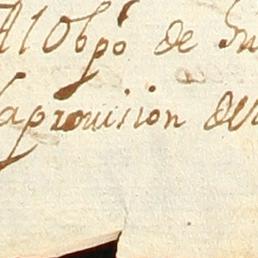 Al Obpo de
la prouision del